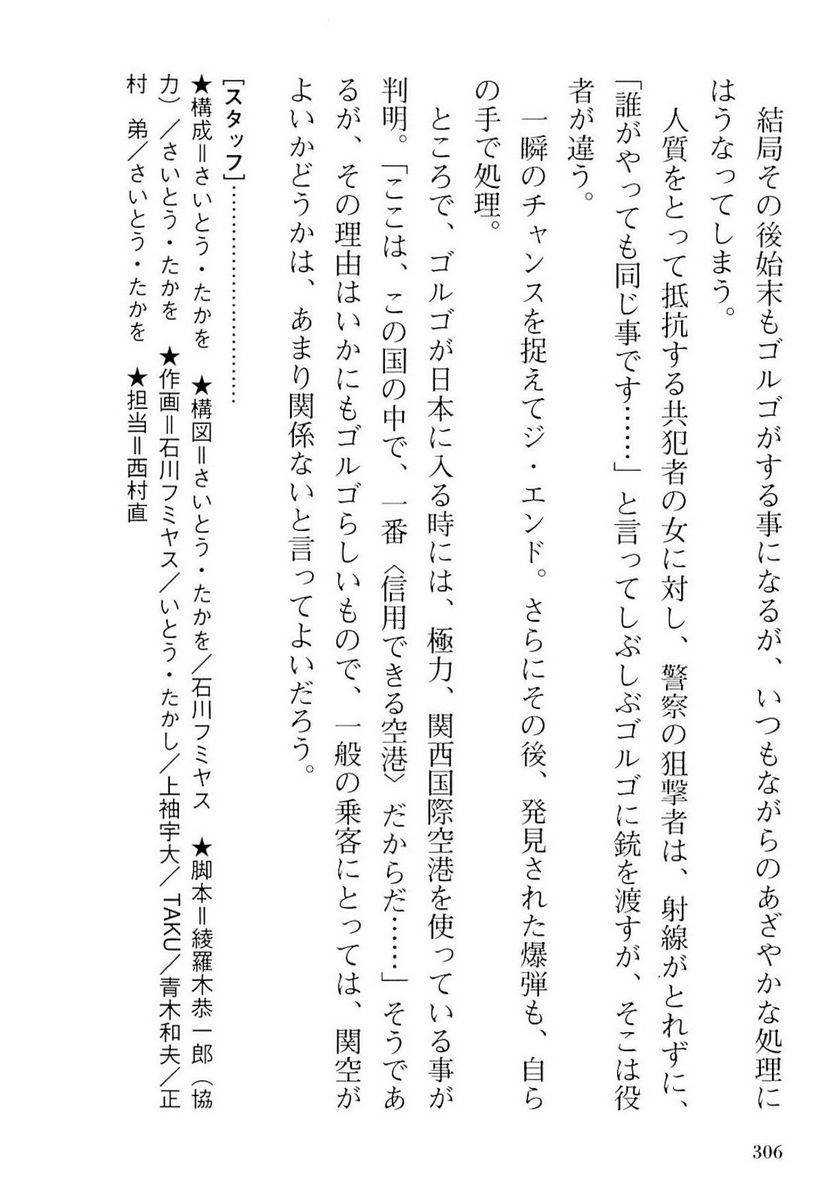 結局その後始末もゴルゴがする事になるが、いつもながらのあざやかな処理に
はうなってしまう。
人質をとって抵抗する共犯者の女に対し、警察の狙撃者は、射線がとれずに、
「誰がやっても同じ事です……」と言ってしぶしぶゴルゴに銃を渡すが、そこは役
者が違う。
一瞬のチャンスを捉えてジ・エンド。さらにその後、発見された爆弾も、自ら
の手で処理。
ところで、ゴルゴが日本に入る時には、極力、関西国際空港を使っている事が
判明。「ここは、この国の中で、一番〈信用できる空港〉だからだ……」そうであ
るが、その理由はいかにもゴルゴらしいもので、一般の乗客にとっては、関空が
よいかどうかは、あまり関係ないと言ってよいだろう。
［スタッフ］…………………………
★構成＝さいとう・たかを　★構図＝さいとう・たかを／石川フミヤス　★脚本＝綾羅木恭一郎（協
力）／さいとう・たかを　★作画＝石川フミヤス／いとう・たかし／上袖宇大／TAKU／青木和夫／正
村　弟／さいとう・たかを　★担当＝西村直
306